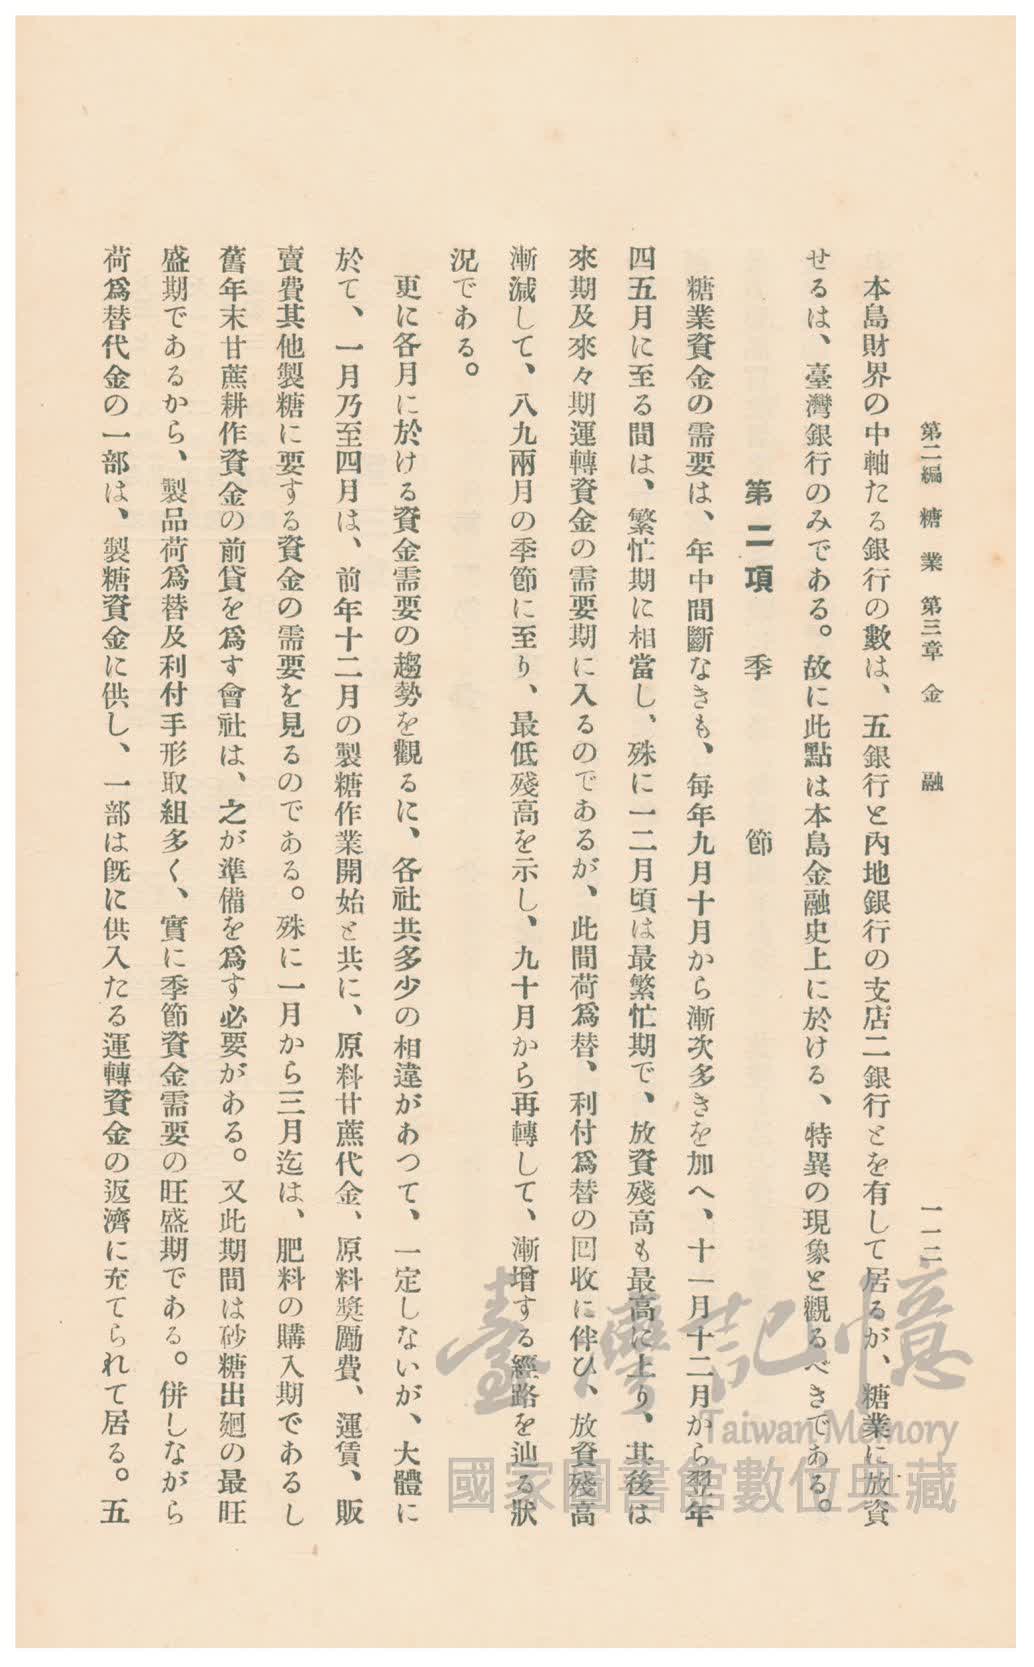 第二編 糖業 第三章 金融 一一二
本島財界の中軸たる銀行の數は、五銀行と內地銀行の支店二銀行とを有して居るが、糖業に放資
せるは、臺灣銀行のみである。故に此點は本島金融史上に於ける、特異の現象と觀るべきである。
第二項 季節
糖業資金の需要は、年中間斷なきも、每年九月十月から漸次多きを加へ、十一月十二月から翌年
四五月に至る間は、繁忙期に相當し、殊に一二月頃は最繁忙期で、放資殘高も最高に上り、其後は
來期及來々期運轉資金の需要期に入るのであるが、此間荷爲替、利付爲替の回收に伴ひ、放資殘高
漸減して、八九兩月の季節に至り、最低殘高を示し、九十月から再轉して、漸增する經路を辿る狀
況である。
更に各月に於ける資金需要の趨勢を觀るに、各社共多少の相違があつて、一定しないが、大體に
於て、一月乃至四月は、前年十二月の製糖作業開始と共に、原料甘蔗代金、原料奬勵費、運賃、販
賣費其他製糖に要する資金の需要を見るのである。殊に一月から三月迄は、肥料の購入期であるし
舊年末甘蔗耕作資金の前貸を爲す會社は、之が準備を爲す必要がある。又此期間は砂糖出廻の最旺
盛期であるから、製品荷爲替及利付手形取組多く、實に季節資金需要の旺盛期である。併しながら
荷爲替代金の一部は、製糖資金に供し、一部は旣に供入たる運轉資金の返濟に充てられて居る。五
臺灣記憶
Taiwan Memory
國家圖書館數位典藏